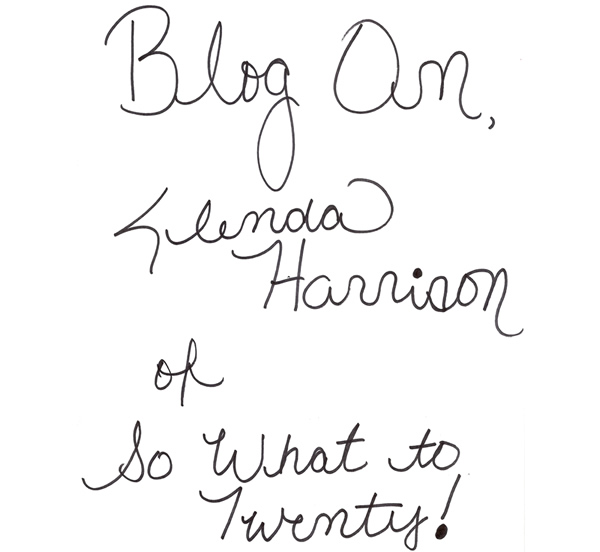 Blog On,
Glenda
Harrison
of
So What to
Twenty!